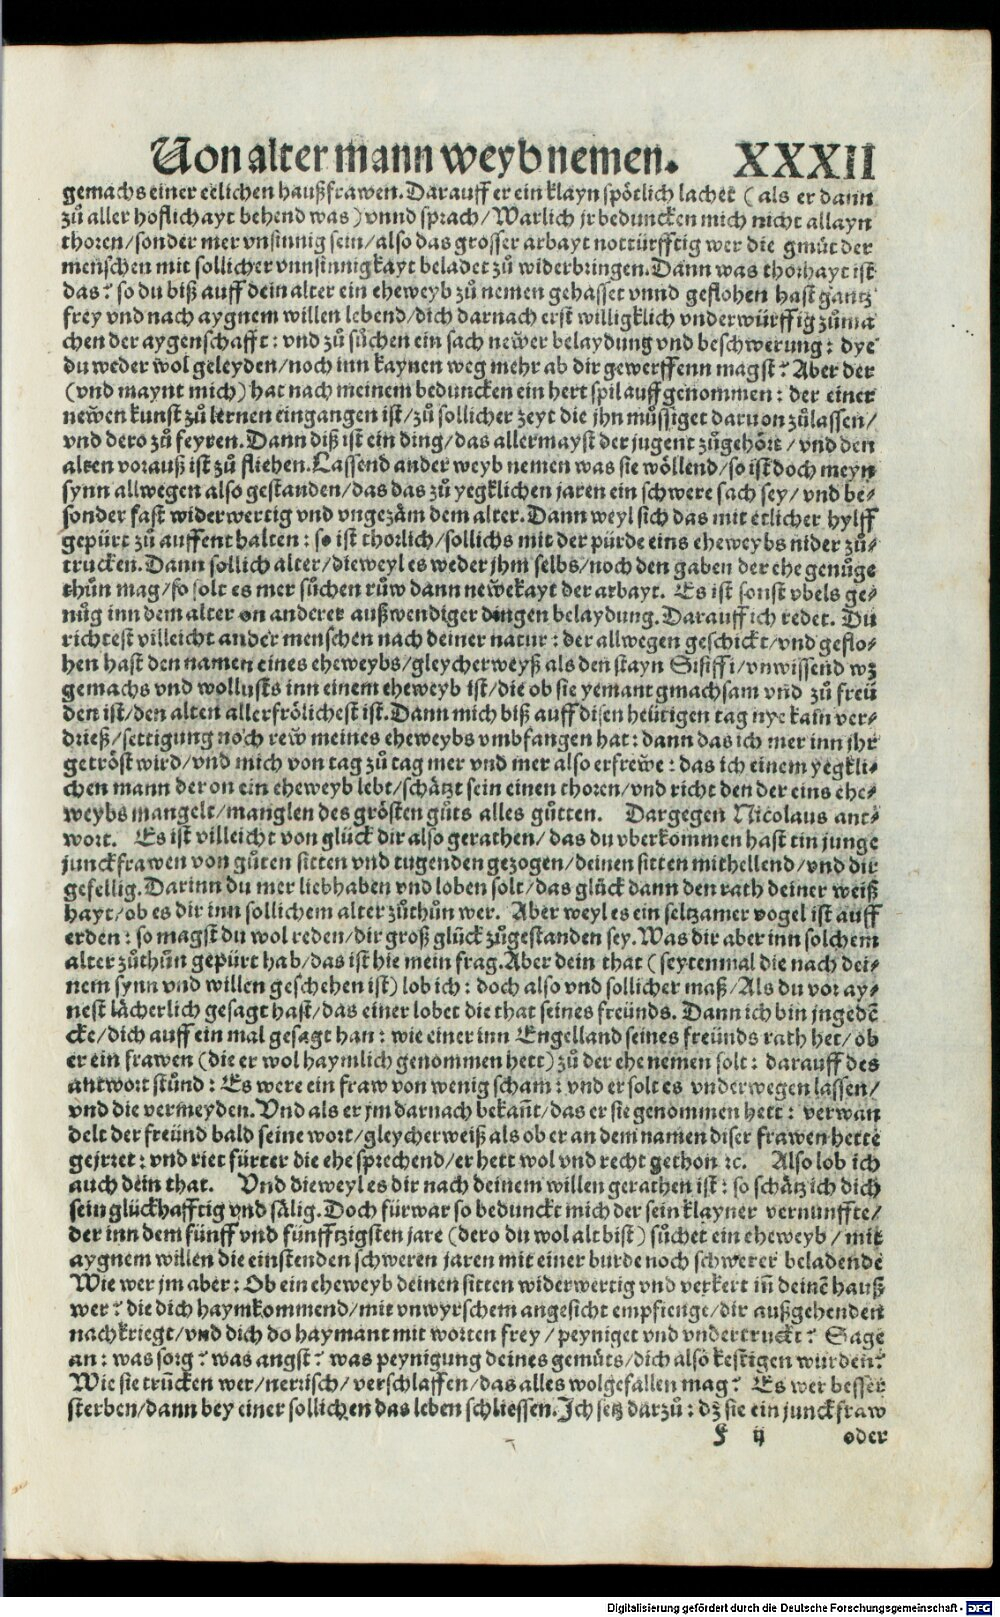 Von alter mann weyb nemen. XXXII
gemachs einer eelichen haußfrawen. Darauff er ein klayn spötlich lachet (als er dann
zů aller hoflichayt behend was) vnnd sprach/Warlich jr beduncken mich nicht allayn
thoren/sonder mer vnsinnig sein/also das grosser arbayt notturfftig wer die gmůt der
menschen mit sollicher vnnsinnigkayt beladet zů widerbringen. Dann was thorhayt ist
das? so du biß auff dein alter ein eheweyb zů nemen gehasset vnnd geflohen hast gantz
frey vnd nach aygnem willen lebend/dich darnach erst willigklich vnderwürffig zůma
chen der aygenschafft: vnd zů sůchen ein sach newer belaydung vnd beschwerung: dye
du weder wol geleyden/noch inn kaynen weg mehr ab dir gewerffenn magst? Aber der
(vnd maynt mich) hat nach meinem beduncken ein hert spil auffgenommen: der einer
newen kunst zů lernen eingangen ist/zů sollicher zeyt die jhn můssiget daruon zůlassen/
vnd dero zů feyren. Dann diß ist ein ding/das allermayst der jugent zůgehört/vnd den
alten vorauß ist zů fliehen. Lassend ander weyb nemen was sie wöllend/so ist doch meyn
synn allwegen also gestanden/das das zů yegklichen jaren ein schwere sach sey/vnd be⸗
sonder fast widerwertig vnd vngezäm dem alter. Dann weyl sich das mit etlicher hylff
gepürt zů auffenthalten: so ist thorlich/sollichs mit der pürde eins eheweybs nider zů⸗
trucken. Dann sollich alter/dieweyl es weder jhm selbs/noch den gaben der ehe genůge
thůn mag/so solt es mer sůchen růw dann newekayt der arbayt. Es ist sonst vbels ge⸗
nůg inn dem alter on anderer außwendiger dingen belaydung. Darauff ich redet. Du
richtest villeicht ander menschen nach deiner natur: der allwegen geschickt/vnd geflo⸗
hen hast den namen eines eheweybs/gleycherweyß als den stayn Sisiffi/vnwissend wz
gemachs vnd wollusts inn einem eheweyb ist/die ob sie yemant gmachsam vnd zů freü
den ist/den alten allerfrölichest ist. Dann mich biß auff disen heütigen tag nye kain ver⸗
drieß/settigung noch rew meines eheweybs vmbfangen hat: dann das ich mer inn jhr
getröst wird/vnd mich von tag zů tag mer vnd mer also erfrewe: das ich einem yegkli⸗
chen mann der on ein eheweyb lebt/schätzt sein einen thoren/vnd richt den der eins ehe⸗
weybs mangelt/manglen des grösten gůts alles gůtten. Dargegen Nicolaus ant⸗
wort. Es ist villeicht von glück dir also gerathen/das du vberkommen hast ein junge
junckfrawen von gůten sitten vnd tugenden gezogen/deinen sitten mithellend/vnd dir
gefellig. Darinn du mer liebhaben vnd loben solt/das glück dann den rath deiner weiß
hayt/ob es dir inn sollichem alter zůthůn wer. Aber weyl es ein seltzamer vogel ist auff
erden: so magst du wol reden/dir groß glück zůgestanden sey. Was dir aber inn solchem
alter zůthůn gepürt hab/das ist hie mein frag. Aber dein that (seytenmal die nach dei⸗
nem synn vnd willen geschehen ist) lob ich: doch also vnd sollicher maß/Als du vor ay⸗
nest lächerlich gesagt hast/das einer lobet die that seines freünds. Dann ich bin jngedẽ
cke/dich auff ein mal gesagt han: wie einer inn Engelland seines freünds rath het/ob
er ein frawen (die er wol haymlich genommen hett) zů der ehe nemen solt: darauff des
antwort stůnd: Es were ein fraw von wenig scham: vnd er solt es vnderwegen lassen/
vnd die vermeyden. Vnd als er jm darnach bekañt/das er sie genommen hett: verwan
delt der freünd bald seine wort/gleycherweiß als ob er an dem namen diser frawen hette
gejrret: vnd riet fürter die ehe sprechend/er hett wol vnd recht gethon ꝛc. Also lob ich
auch dein that. Vnd dieweyl es dir nach deinem willen gerathen ist: so schätz ich dich
sein glückhafftig vnd sälig. Doch fürwar so bedunckt mich der sein klayner vernunffte/
der inn dem fünff vnd fünfftzigsten jare (dero du wol alt bist) sůchet ein eheweyb/mit
aygnem willen die einstenden schweren jaren mit einer burde noch schwerer beladende
Wie wer jm aber: Ob ein eheweyb deinen sitten widerwertig vnd verkert iñ deinẽ hauß
wer? die dich haymkommend/mit vnwyrschem angesicht empfienge/dir außgehenden
nachkriegt/vnd dich do haymant mit worten frey/peyniget vnd vndertruckt? Sage
an: was sorg? was angst? was peynigung deines gemůts/dich also kestigen wurden?
Wie sie truncken wer/nerrisch/verschlaffen/das alles wolgefallen mag? Es wer besser
sterben/dann bey einer sollichen das leben schliessen. Ich setz darzů: dz sie ein junckfraw
F ij oder
Digitalisierung gefördert durch die Deutsche Forschungsgemeinschaft - DFG